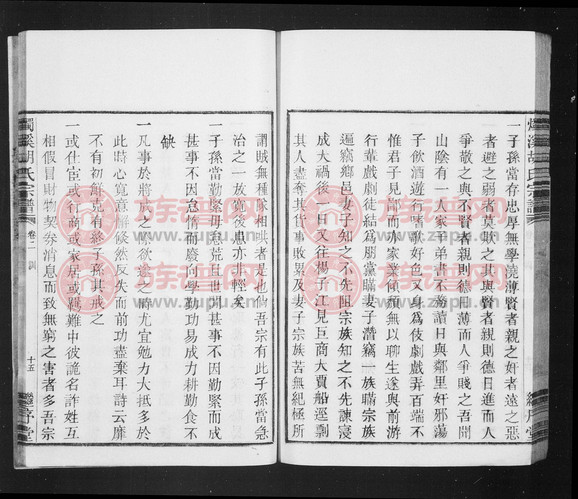 一子孫當存忠厚無學澆薄賢者親之奸者遠之惡
者避之弱者莫欺之其與賢者親則德日進而人
爭敬之與不賢者親則德日薄而人爭賤之吾聞
山陰有一人家子弟書不務讀日與鄰里奸邪蕩
子飲酒遊行嗜歌好色又身為伎劇戲弄百端不
惟君子見鄙而家業傾頹無以聊生遂與前游
行輩戲劇徒結為朋黨瞞妻子潛竊一族瞞宗族
遍竊鄉邑妻子知之不先阻宗族知之不先諫寖
成大禍後一日又往楊子江見巨商大賈船逕剽
其人盡奪其貨事敗累及妻子宗族苦無紀極所
謂賊無種隊相哄者是也倘吾宗有此子孫當急
治之一放寬後患亦非輕矣
一子孫當勤緊毋怠荒且世間甚事不因勤緊而成
甚事不因怠惰而廢向學勤功易成力耕勤食不
缺
一凡事於將成之際欲滿之時尤宜勉力大抵多於
此時心寬意懈倏然反失而前功盡棄耳詩云靡
不有初鮮克有終子孫其戒之
一或仕宦或行商或家居或羈難中彼詭名詐姓互
相假冒財物契券消息而致無窮之害者多吾宗
燭溪胡氏宗譜
卷二
訓
十五
繼序堂
燭溪胡氏宗譜
繼序堂
族譜网
www.zupu.cn
族譜网
www.zupu.cn